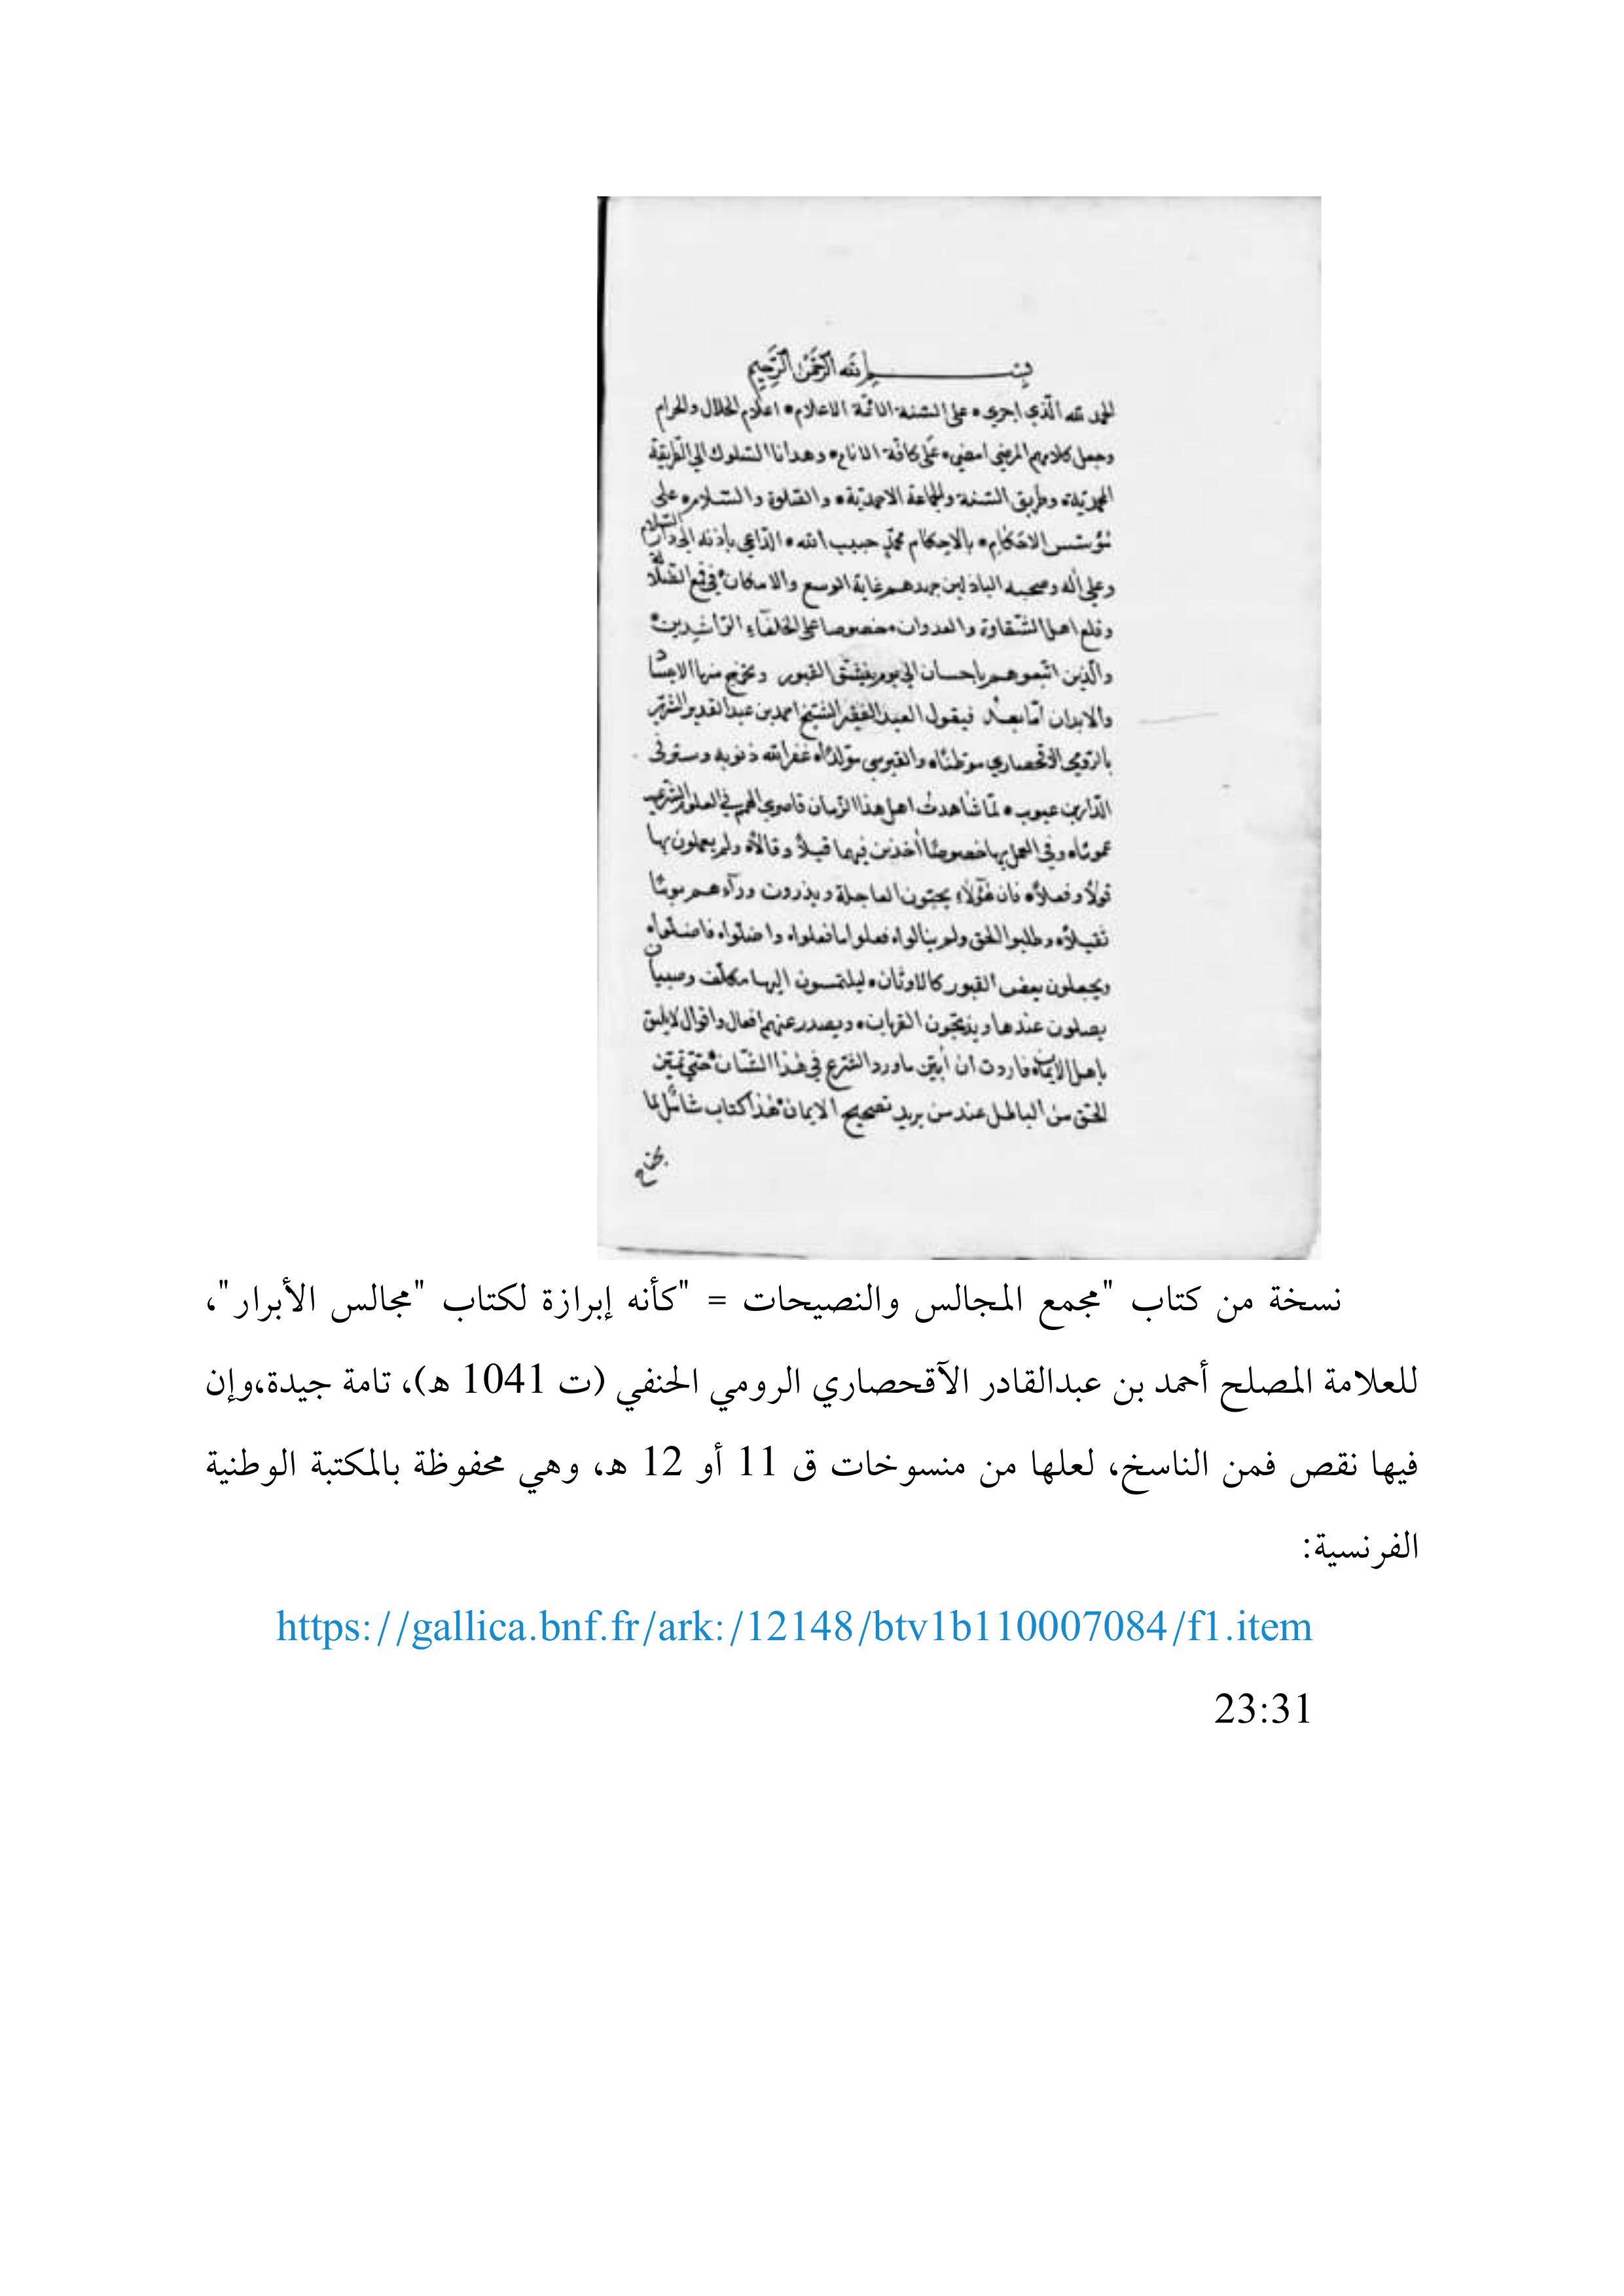 بسم الله الرحمن الرحيم
الحمد لله الذي اجرى على السنة الائمة الاعلام اعلام الحلال والحرام
وجعل كلامهم المرضي امضى على كافة الانام وهدانا السلوك الى الطريقة
المحمدية وطريق السنة والجماعة الاحمدية والصلوة والسلام على
مؤسس الاحكام بالاحكام محمد حبيب الله الداعي باذنه الى دار السلام
وعلى اله وصحبه الباذلين جهدهم غاية الوسع والامكان في قمع الضلالة
وقلع اهل الشقاوة والعدوان خصوصا على الخلفاء الراشدين
والذين اتبعوهم باحسان الى يوم ينشق القبور ويخرج منها الاجساد
والابدان اما بعد فيقول العبد الفقير الشيخ احمد بن عبد القدير الشهير
بالرومي الاقحصاري موطنا والقبرسي مولدا غفر الله ذنوبه وستر في
الدارين عيوبه لما شاهدت اهل هذا الزمان قاصري الهمم في العلوم الشرعية
عموما وفي العمل بها خصوصا اخذين فيها قيلا وقالا ولم يعملون بها
قولا وفعلا فان هؤلاء يحبون العاجلة ويذرون ورآءهم يوما
ثقيلا وطلبوا الحق ولم ينالوا فعلوا ما فعلوا واضلوا فاضلوا
ويجعلون بعض القبور كالاوثان ليلتمسون اليها مكلف وصبيان
يصلون عندها ويذبحون القربان ويصدر عنهم افعال واقوال لا يليق
باهل الايمان فاردت ان أبين ما ورد الشرع في هذا الشان حتى تميز
الحق من الباطل عند من يريد تصحيح الايمان هذا كتاب شامل لما
نسخة من كتاب "مجمع المجالس والنصيحات = "كأنه إبرازة لكتاب "مجالس الأبرار"،
للعلامة المصلح أحمد بن عبدالقادر الآقحصاري الرومي الحنفي (ت 1041 هـ)، تامة جيدة،وإن
فيها نقص فمن الناسخ، لعلها من منسوخات ق 11 أو 12 هـ، وهي محفوظة بالمكتبة الوطنية
الفرنسية:
https://gallica.bnf.fr/ark:/12148/btv1b110007084/f1.item
23:31